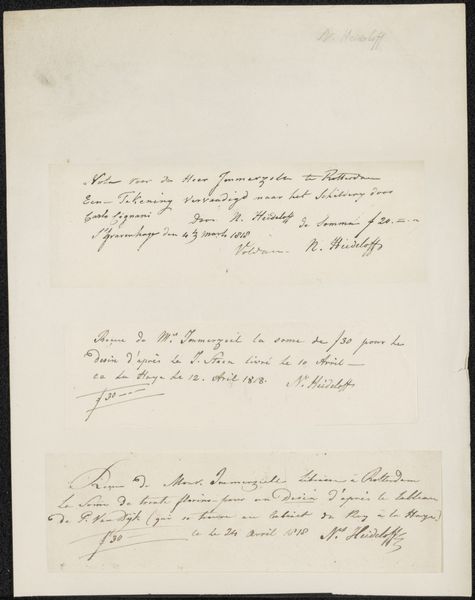 N. Heideloff
Nota voor de Heer Immerzeele te Rotterdam
Een Tekening vervaardigd naar het Schildery door
Carlo Cignani door N. Heideloff de Somma f 20. = . =
S'Gravenhage den 4 Marts 1818
Voldaan N. Heideloff
Reçue de Mr. Immerzeil la some de f30 pour le
Desin d'après le J. Steen livré le 10 Avril —
ce La Haye le 12. Avril 1818. Ns. Heideloff
f 30 —
Reçue de Mons. Immerziele Libraire à Rotterdam
la Some de trente florins pour un Desin d'après le tableau
de P. Van Dyk (qui se trouve au Cabinet du Roy à la Haye)
f 30 ce le 24 Avril 1818 Ns. Heideloff